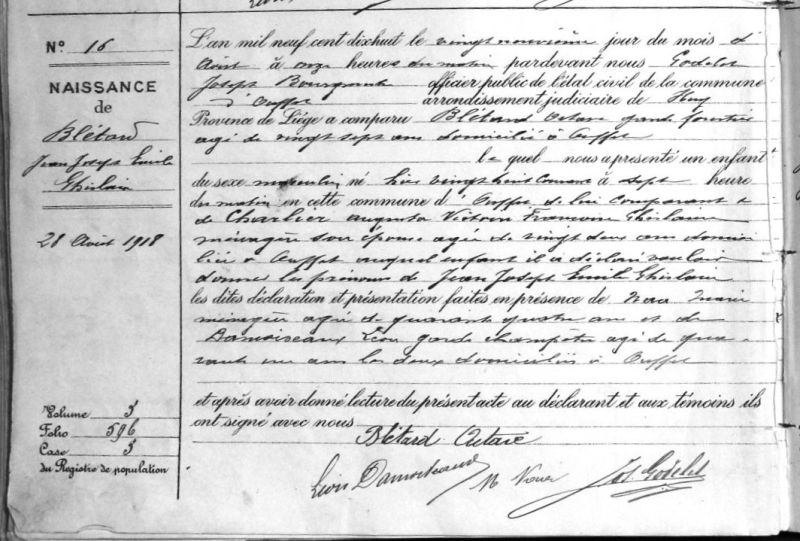 N° 16
NAISSANCE
de
Blétard
Jean Joseph Emile
Ghislain
28 Août 1918
Volume 5
Folio 596
Case 5
du Registre de population
L'an mil neuf cent dixhuit le vingt neuvième jour du mois d'
Août à onze heures du matin pardevant nous Godelet
Joseph Bourgmestre officier public de l'état civil de la commune
d'Ouffet arrondissement judiciaire de Huy
Province de Liége a comparu Blétard Octave garde forestier
agé de vingt sept ans domicilié à Ouffet
le quel nous a présenté un enfant
du sexe masculin né hier vingt huit courant à sept heure
du matin en cette commune d'Ouffet de lui comparant &
de Charlier Augusta Victorine Françoise Ghislaine
ménagère son épouse agée de vingt deux ans domici
liée à Ouffet auquel enfant il a déclaré vouloir
donner les prénoms de Jean Joseph Emile Ghislain
les dites déclaration et présentation faites en présence de Marie
ménagère agée de quarante quatre ans et de
Damoiseaux Léon garde champêtre agé de qua
rante un ans les deux domiciliés à Ouffet
et après avoir donné lecture du présent acte au déclarant et aux témoins ils
ont signé avec nous
Blétard Octave
Léon Damoiseaux M Jos. Godelet